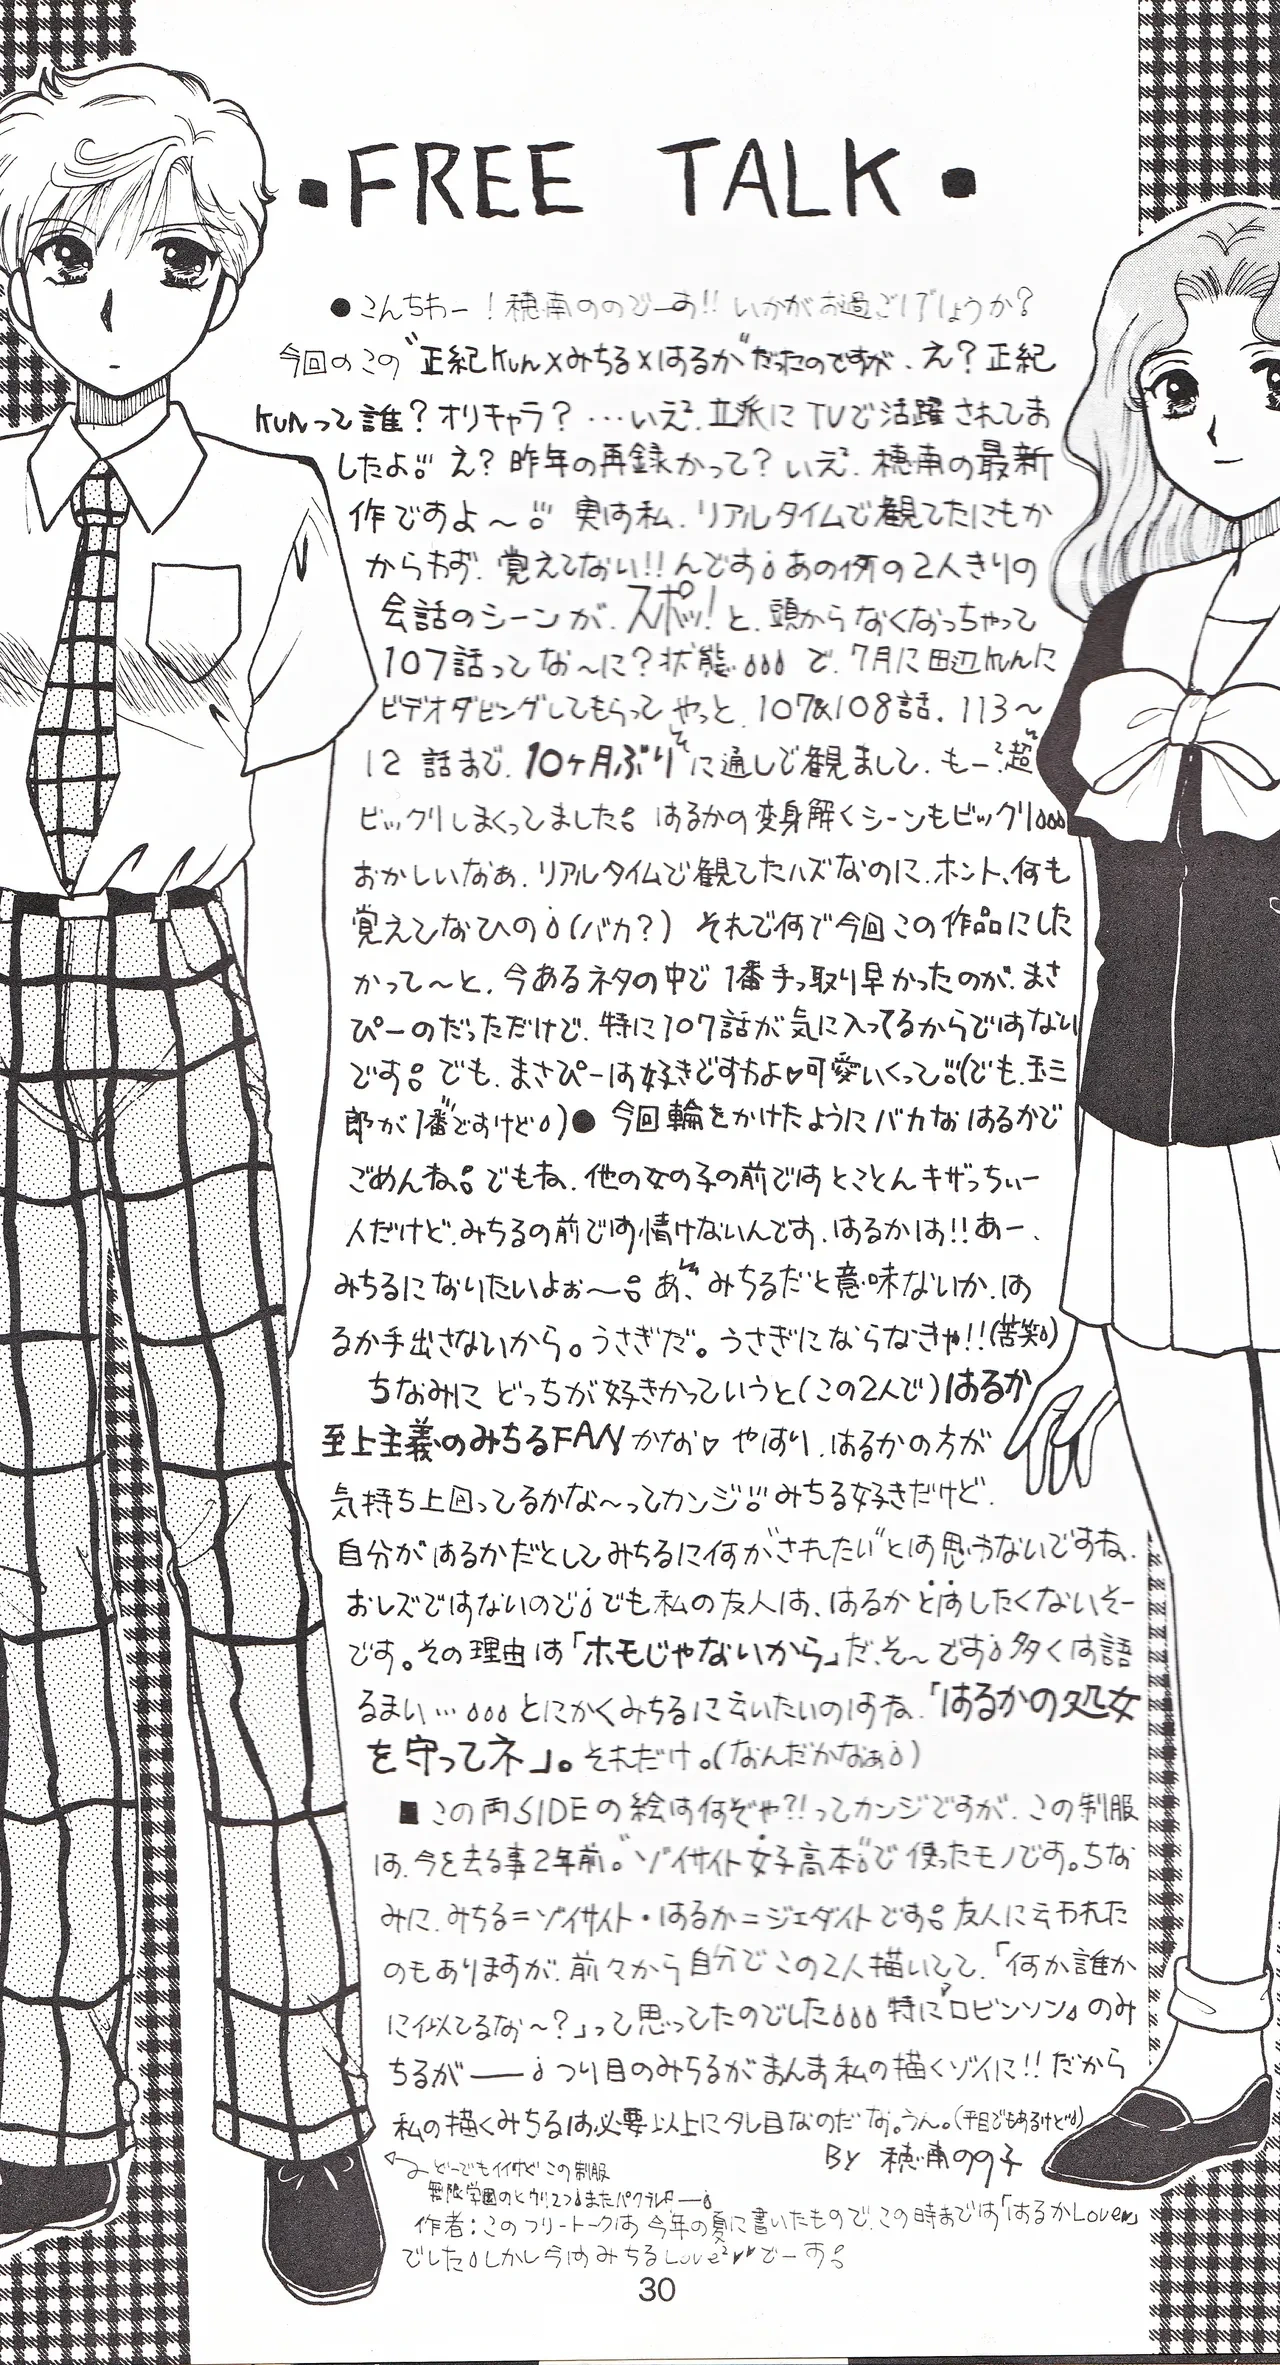 ■FREE TALK■
●こんちわー!穂南ののでーす!!いかがお過ごしでしょうか?
今回のこの"正紀kun×みちる×はるか"だったのですが、え?正紀
kunって誰?オリキャラ?…いえ²、立派にTVで活躍されてま
したよ!!え?昨年の再録かって?いえ²、穂南の最新
作ですよ〜!!実は私、リアルタイムで観てたにもか
かわらず、覚えてない!!んです。あの例の2人きりの
会話のシーンが、スポッ!と、頭からなくなっちゃって
107話ってな〜に?状態。で、7月に田辺kunに
ビデオダビングしてもらってやっと、107&108話、113〜
12 話まで、10ヶ月ぶりに通しで観まして、もー²、"超"
ビックリしまくってました。はるかの変身解くシーンもビックリ
おかしいなぁ、リアルタイムで観てたハズなのに、ホント、何も
覚えてなひの(バカ?) それで何で今回この作品にした
かって〜と、今あるネタの中で1番手っ取り早かったのが、まさ
ぴーのだっただけで、特に107話が気に入ってるからではない
です。でも、まさぴーは好きですわよ♥可愛いくって!!(でも、玉三
郎が"1番"ですけど)●今回輪をかけたようにバカなはるかで
ごめんね。でもね、他の女の子の前ではとことんキザっちぃー
人だけど、みちるの前では情けないんです、はるかは!!あー、
みちるになりたいよぉ〜。あ、みちるだと意味ないか、は
るか手出さないから。うさぎだ。うさぎにならなきゃ!!(苦笑)
ちなみにどっちが好きかっていうと(この2人で)はるか
至上主義のみちるFANかな♡やはり、はるかの方が
気持ち上回ってるかな〜ってカンジ!!みちる好きだけど、
自分がはるかだとしてみちるに何か"されたい"とは思わないですね、
おレズではないので。でも私の友人は、はるかとはしたくないそー
です。その理由は「ホモじゃないから」だ、そ〜です。多くは語
るまい…とにかくみちるに言いたいのはね、「はるかの処女
を守ってネ」。それだけ。(なんだかなぁ)
■この両SIDEの絵は何ぞや?!ってカンジですが、この制服
は、今を去る事2年前。"ゾイサイト女子高本"で使ったモノです。ちな
みに、みちる=ゾイサイト・はるか=ジェダイトです。友人に言われた
のもありますが、前々から自分でこの2人描いてて、「何か誰か
に似てるな〜?」って思ってたのでした特に"ロビンソン"のみ
ちるがーつり目のみちるがまんま私の描くゾイに!!だから
私の描くみちるは必要以上にタレ目なのだな。うん。(平目でもあるけど)
BY 穂南のの子
どーでもイイけどこの制服
無限学園のとウリ2つまたパクラレター
作者:このフリートークは今年の夏に書いたもので、この時までは「はるかLove♥」
でした。しかし今はみちるLove²♥♥でーす。
30